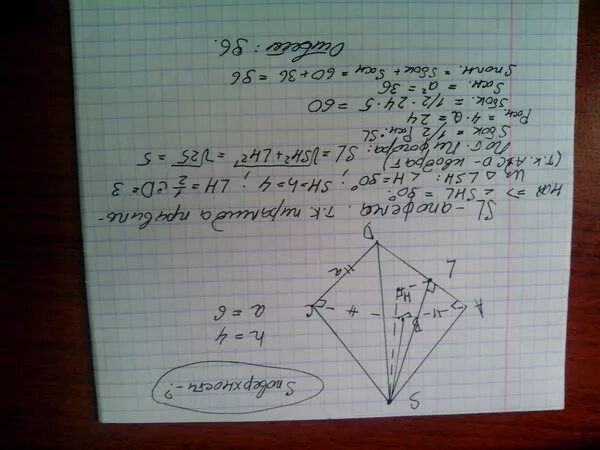 Sповерхности - ?
h = 4
a = 6
S
A
B
C
D
H
L
a
SL - апофема. т.к пирамида правиль-
ная => ∠SHL = 90°.
Из △LSH: ∠H = 90°; SH = h = 4; LH = 1/2 CD = 3
(т.к. ABCD - квадрат)
По т. Пифагора: SL = √SH²+LH² = √25 = 5
Sбок = 1/2 Pосн · SL
Pосн. = 4·a = 24
Sбок. = 1/2 · 24 · 5 = 60
Sосн. = a² = 36
Sполн. = Sбок + Sосн = 60 + 36 = 96
Ответ: 96.